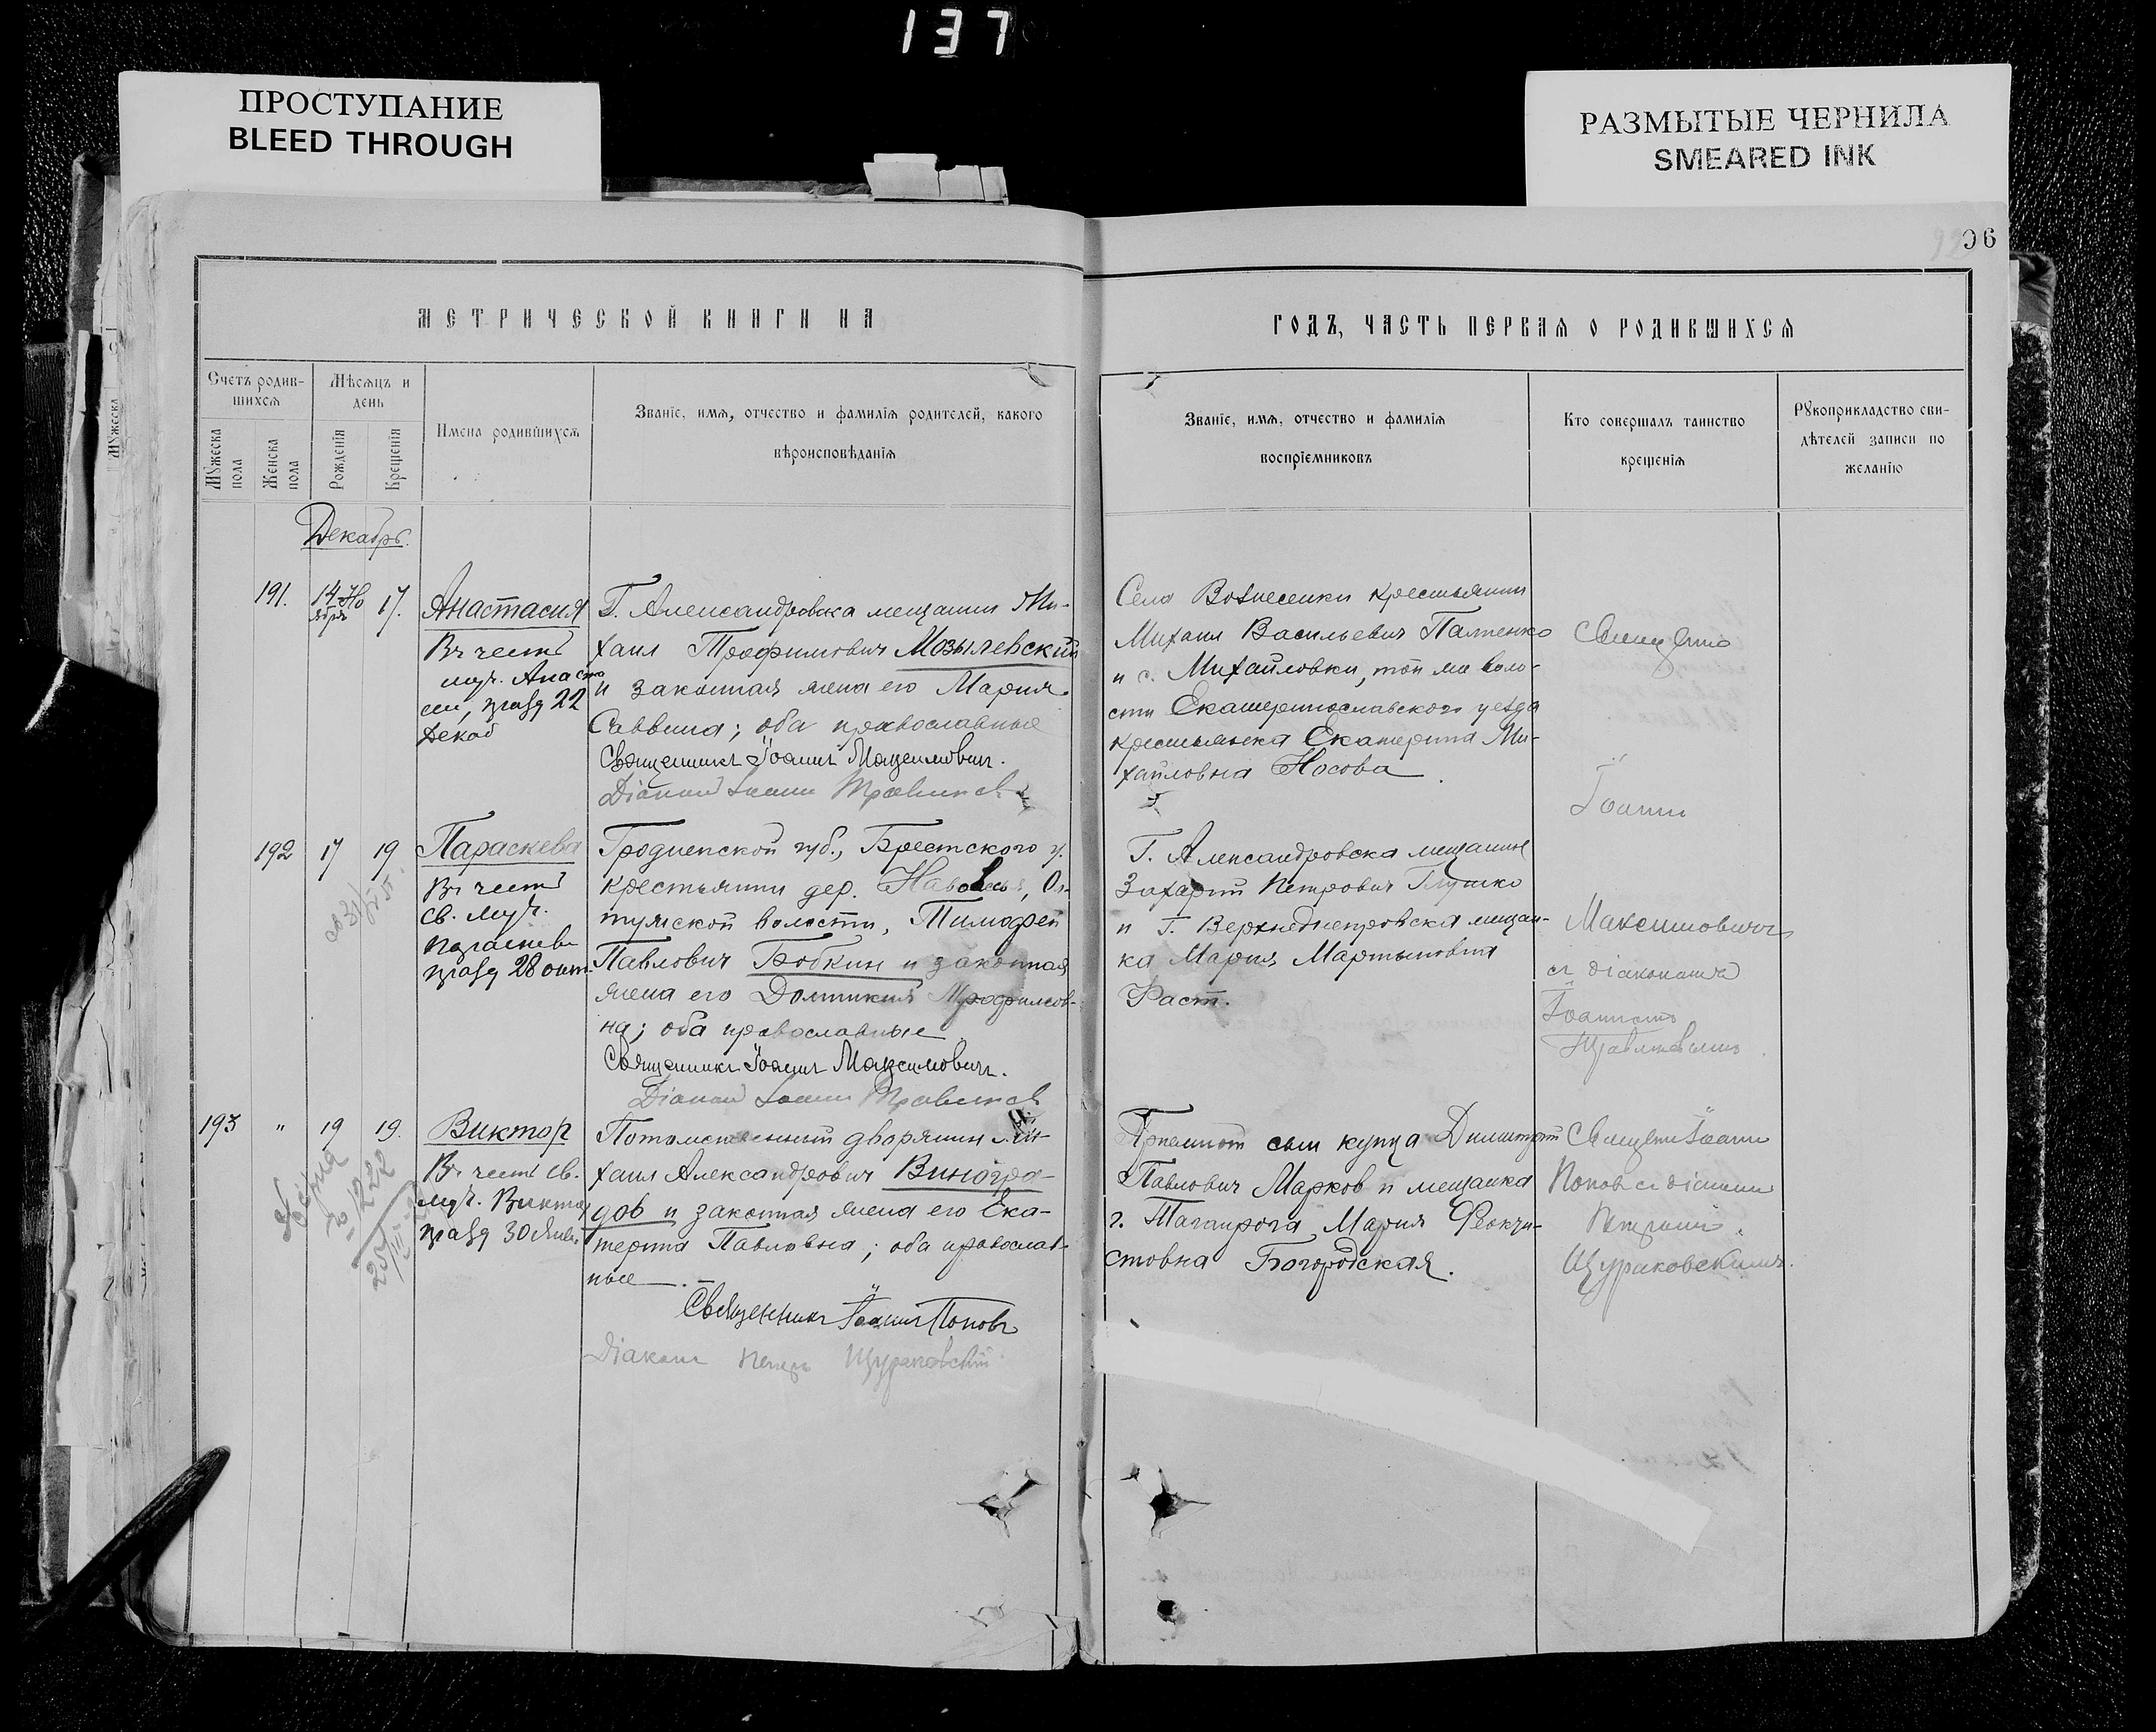 137
ПРОСТУПАНИЕ
BLEED THROUGH
РАЗМЫТЫЕ ЧЕРНИЛА
SMEARED INK
96
МЕТРИЧЕСКОЙ КНИГИ НА
ГОДЪ, ЧАСТЬ ПЕРВАЯ О РОДИВШИХСЯ
Счетъ родив-
шихся
Мѣсяцъ и
день
Мужеска
пола
Женска
пола
Рожденія
Крещенія
Имена родившихся
Званіе, имя, отчество и фамилія родителей, какого
вѣроисповѣданія
Званіе, имя, отчество и фамилія
воспріемниковъ
Кто совершалъ таинство
крещенія
Рукоприкладство сви-
дѣтелей записи по
желанію
Декабрь.
191.
14 Но
ября
17.
Анастасия
Въ честь
муч. Анаста
сии, празд 22
Декаб
Г. Александровска мещанин Ми-
хаил Трофимович Мозылевский
и законная жена его Мария
Саввина; оба православные
Священникъ Іоаннъ Максимовичъ.
Діаконъ Іоаннъ
Села Вознесенки крестьянин
Михаил Васильевич Палиенко
и с. Михайловки, той же воло-
сти Екатеринославского уезда
крестьянка Екатерина Ми-
хайловна Носова
Священ
Іоаннъ
Максимовичъ
съ діакономъ
Іоанномъ
192
17
19
Параскева
Въ честь
св. муч.
Параскевы
празд 28 окт.
Гродненской губ., Брестского у.
крестьянин дер.
волости, Тимофей
Павлович Бобкин и законная
жена его Домникия Трофимов-
на; оба православные
Священникъ Іоаннъ Максимовичъ.
Діаконъ Іоаннъ
Г. Александровска мещанин
Захарий Петрович Глушко
и Г. Верхнеднепровска мещан-
ка Мария Мартыновна
Фаст.
193
"
19
19.
Виктор
Въ честь св.
муч. Виктора
празд 30 Янв.
Потомственный дворянин Ми-
хаил Александрович Виногра-
дов и законная жена его Ека-
терина Павловна; оба православ-
ные.
Священникъ Іоаннъ Поповъ
Діаконъ Петръ Щураковскій
Приемный сын купца Димитрий
Павлович Марков и мещанка
г. Таганрога Мария Феокти-
стовна Богородская.
Священ Іоаннъ
Поповъ съ діакон
Петромъ
Щураковскимъ.